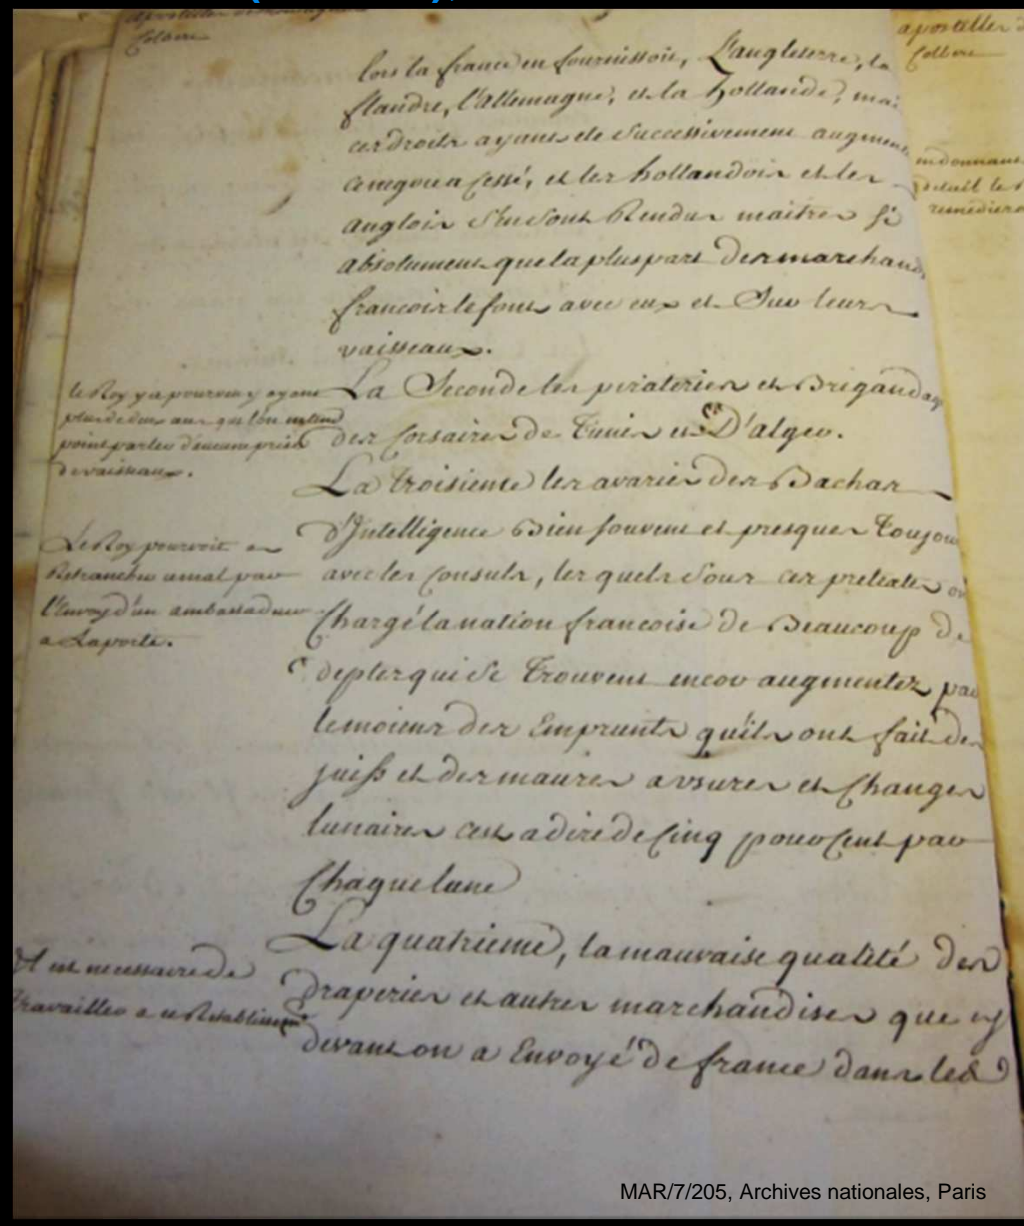 apostilles de Monsieur
Colbert
lors la france en fournissoit, L'angleterre, la
flandre, l'allemagne, et la hollande, mai
ces droits ayant ete Successivement augment
ce negoce a Cessé, et les hollandois et les
anglois S'en Sont Rendus maitres Si
absolument que la pluspart des marchands
francois le font avec eux et Sur leurs
vaisseaux.
le Roy y a pourveu y ayant
plus de deux ans que l'on n'entend
point parler d'aucune prise
de vaisseaux.
La Seconde les pirateries et Brigandages
des Corsaires de Tunis et D'alger.
La troisieme les avanies des Bachas
d'Intelligence Bien souvent et presques Toujou
avec les Consuls, les quels Sous ces pretextes on
Chargé la nation francoise de Beaucoup de
deptes qui Se Trouvent encor augmentez par
le moien des Emprunts qu'ils ont fait des
juifs et des maures a usures et Changes
lunaires cest a dire de Cinq pour Cent par
Chaque lune
Le Roy pourvoit en
Retrancher ce mal par
l'Envoy d'un ambassadeur
a Laporte.
La quatrieme, la mauvaise qualité des
draperies et autres marchandises que cy
devant on a Envoyé de france dans les
Il est necessaire de
Travailler a ce Restablissemt
apostilles d
Colbert
en donnant
detail le
remediera
MAR/7/205, Archives nationales, Paris